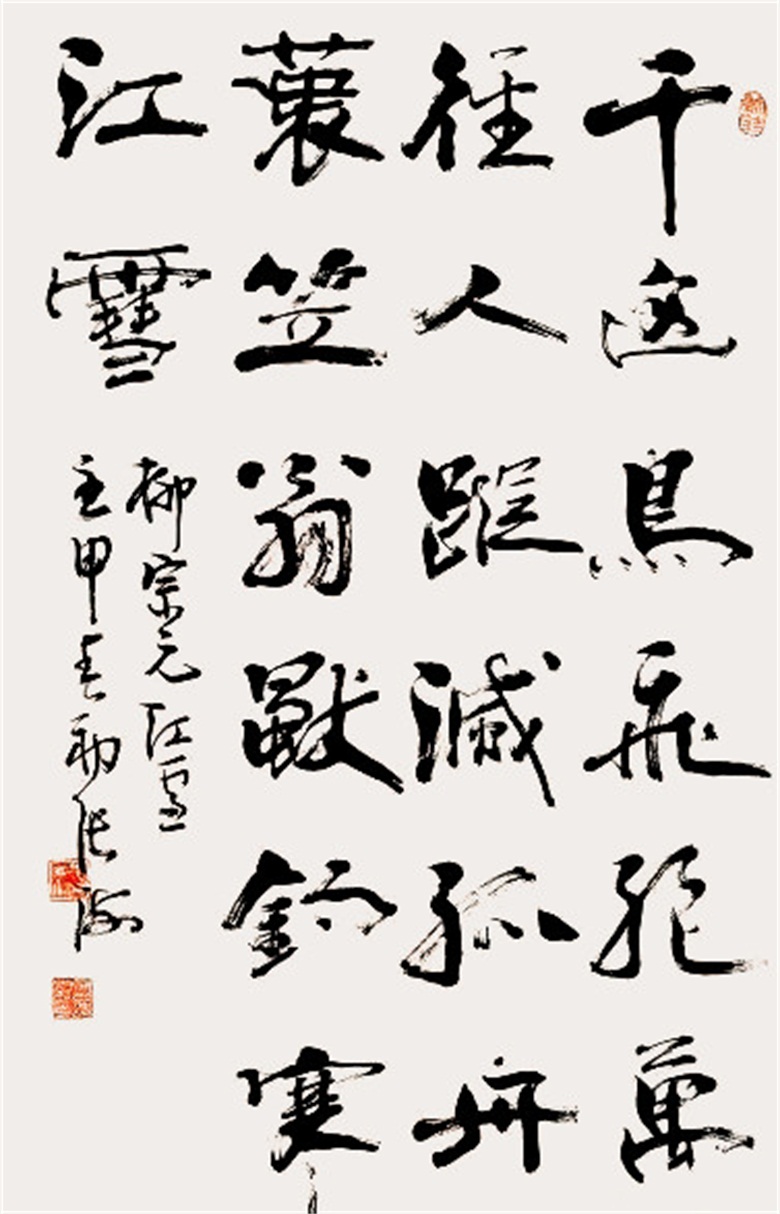 千山鳥飛絕萬
徑人蹤滅孤舟
蓑笠翁獨釣寒
江雪
柳宗元江雪
春初張海